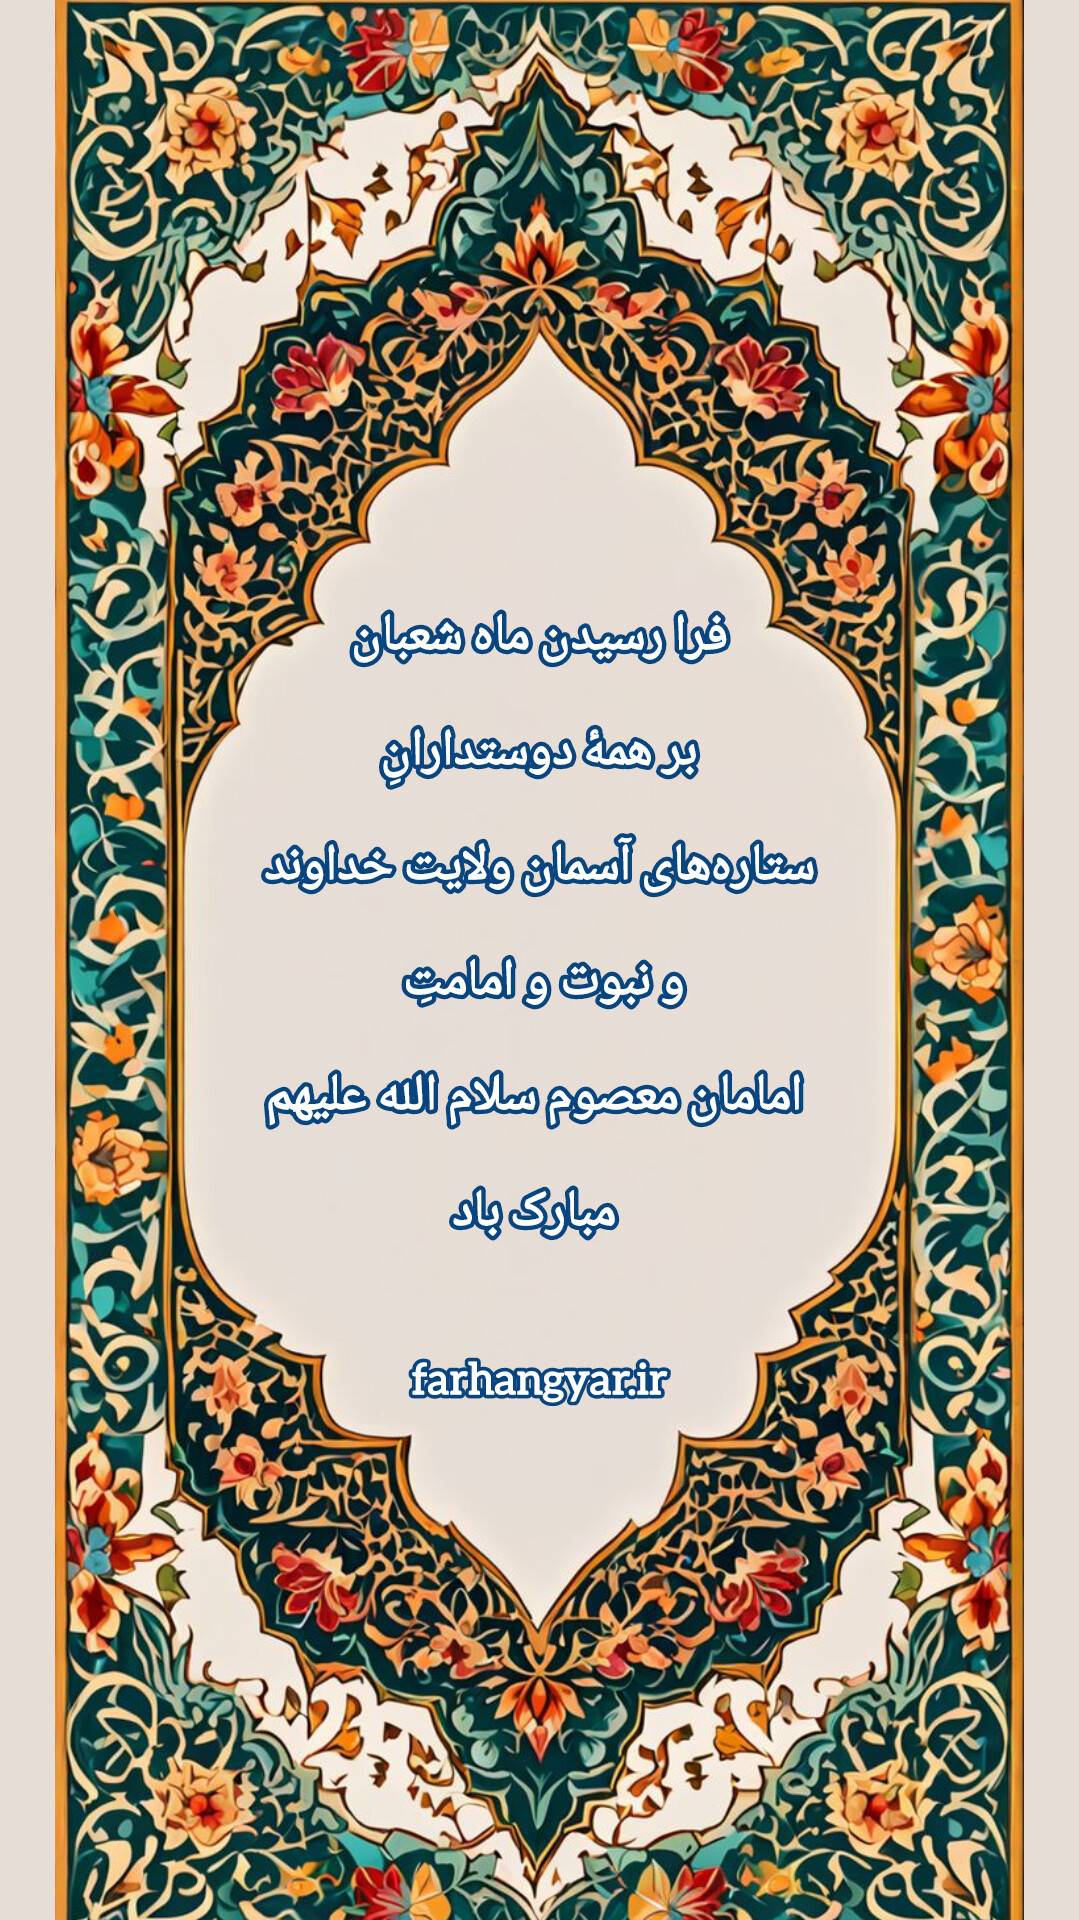 فرا رسیدن ماه شعبان
بر همهٔ دوستدارانِ
ستاره‌های آسمان ولایت خداوند
و نبوت و امامتِ
امامان معصوم سلام الله علیهم
مبارک باد
farhangyar.ir